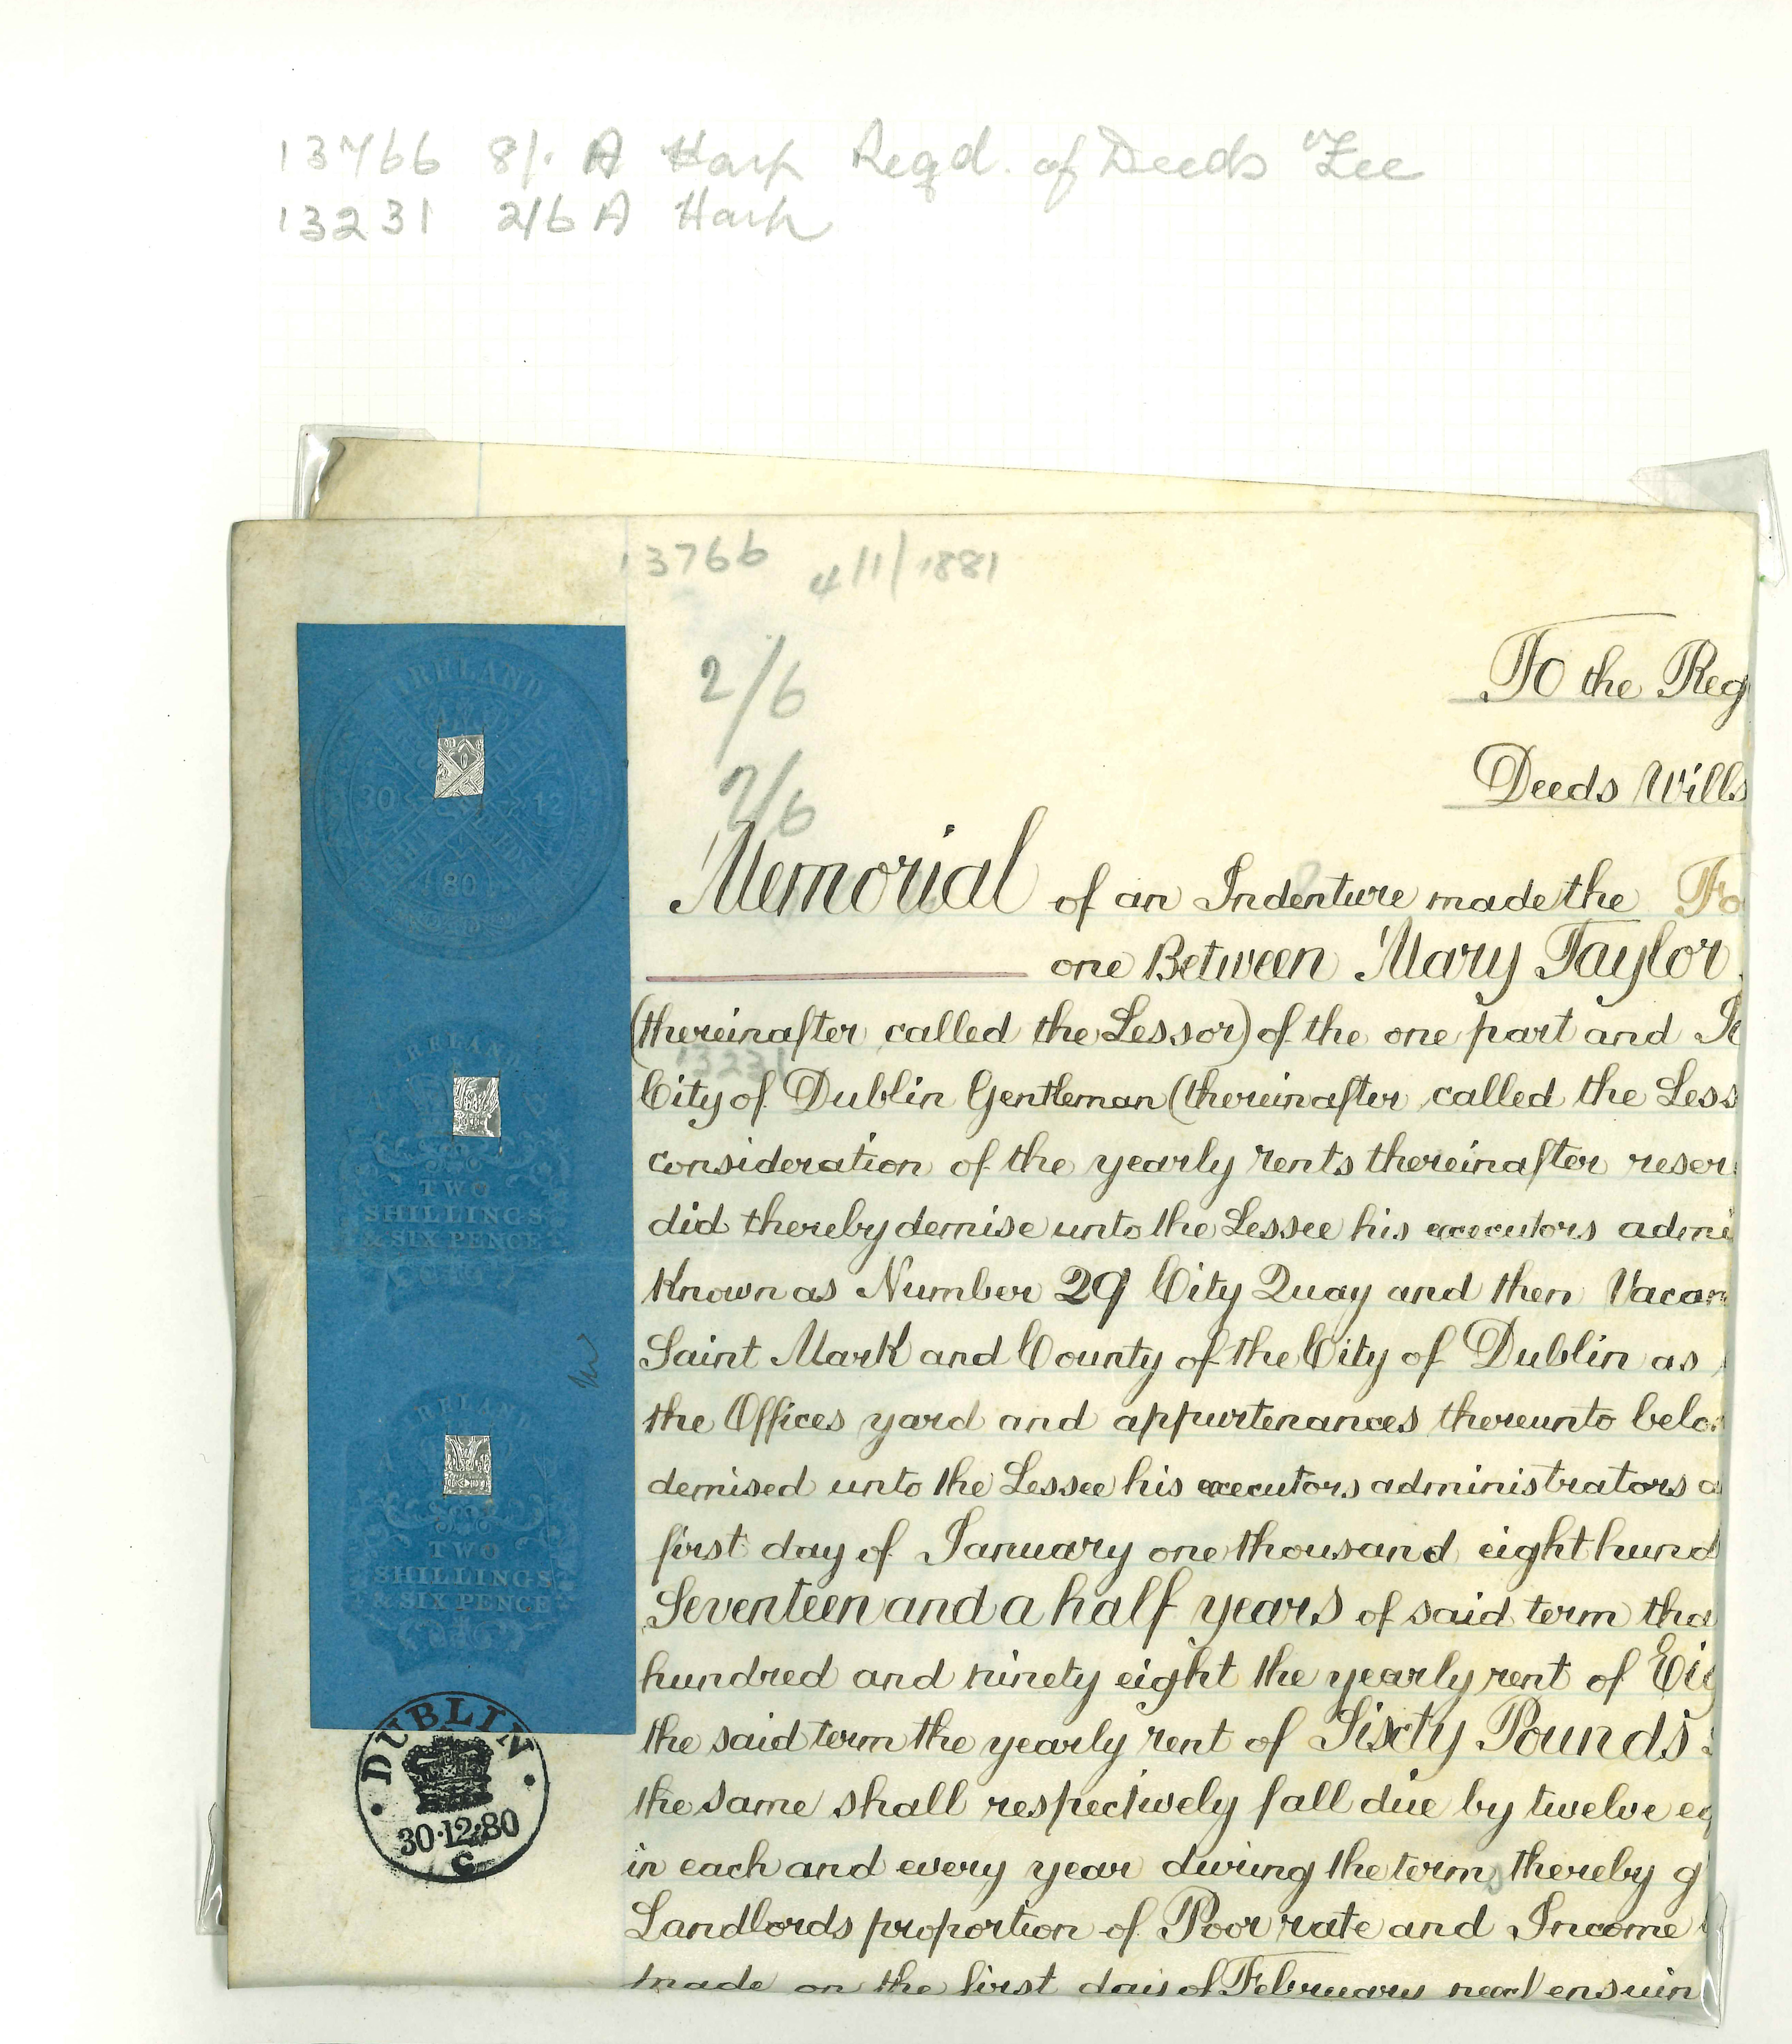 13766 8/. A Harp Regd. of Deeds Fee
13231 2/6 A Harp
13766 4/1/1881
2/6
2/6
To the Reg
Deeds Wills
Memorial of an Indenture made the Fo
one Between Mary Taylor
(thereinafter called the Lessor) of the one part and
13231
City of Dublin Gentleman (thereinafter called the Less
consideration of the yearly rents thereinafter reser
did thereby demise unto the Lessee his executors admi
Known as Number 29 City Quay and then Vacan
Saint Mark and County of the City of Dublin as
the Offices yard and appurtenances thereunto belo
demised unto the Lessee his executors administrators a
first day of January one thousand eight hund
Seventeen and a half years of said term tha
hundred and ninety eight the yearly rent of Eig
the said term the yearly rent of Sixty Pounds
the same shall respectively fall due by twelve eq
in each and every year during the term thereby g
Landlords proportion of Poor rate and Income
made on the first day of February next ensuin
IRELAND
30 12
80
IRELAND
TWO
SHILLINGS
& SIX PENCE
IRELAND
TWO
SHILLINGS
& SIX PENCE
DUBLIN
30·12·80
C